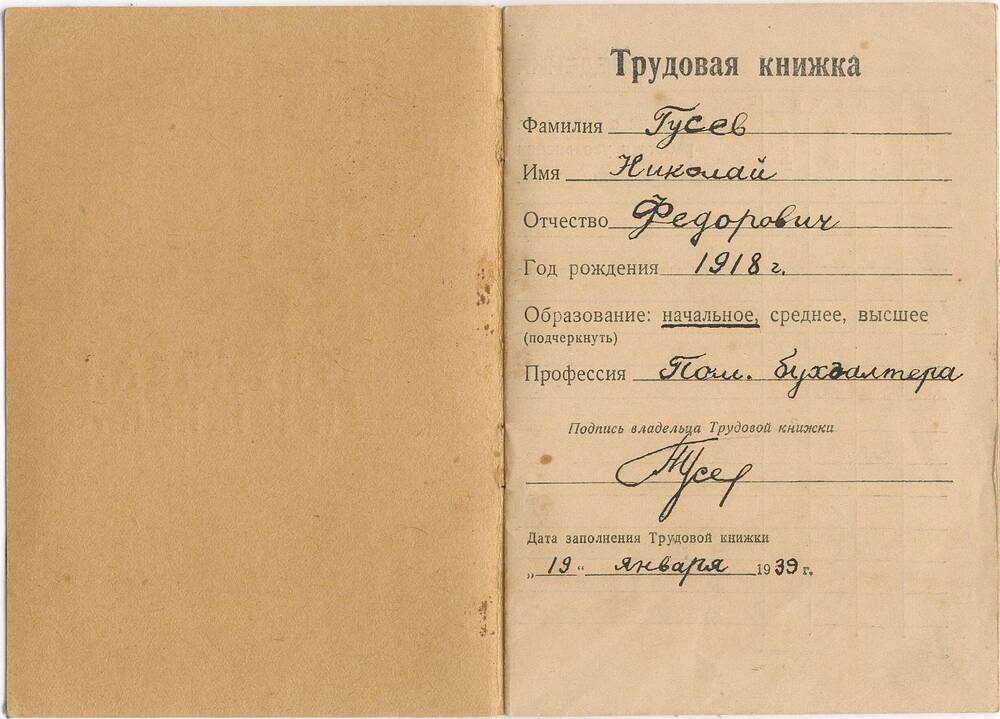 Трудовая книжка
Фамилия Гусев
Имя Николай
Отчество Федорович
Год рождения 1918 г.
Образование: начальное, среднее, высшее
(подчеркнуть)
Профессия Пом. бухгалтера
Подпись владельца Трудовой книжки
Гусев
Дата заполнения Трудовой книжки
„19“ января 1939 г.